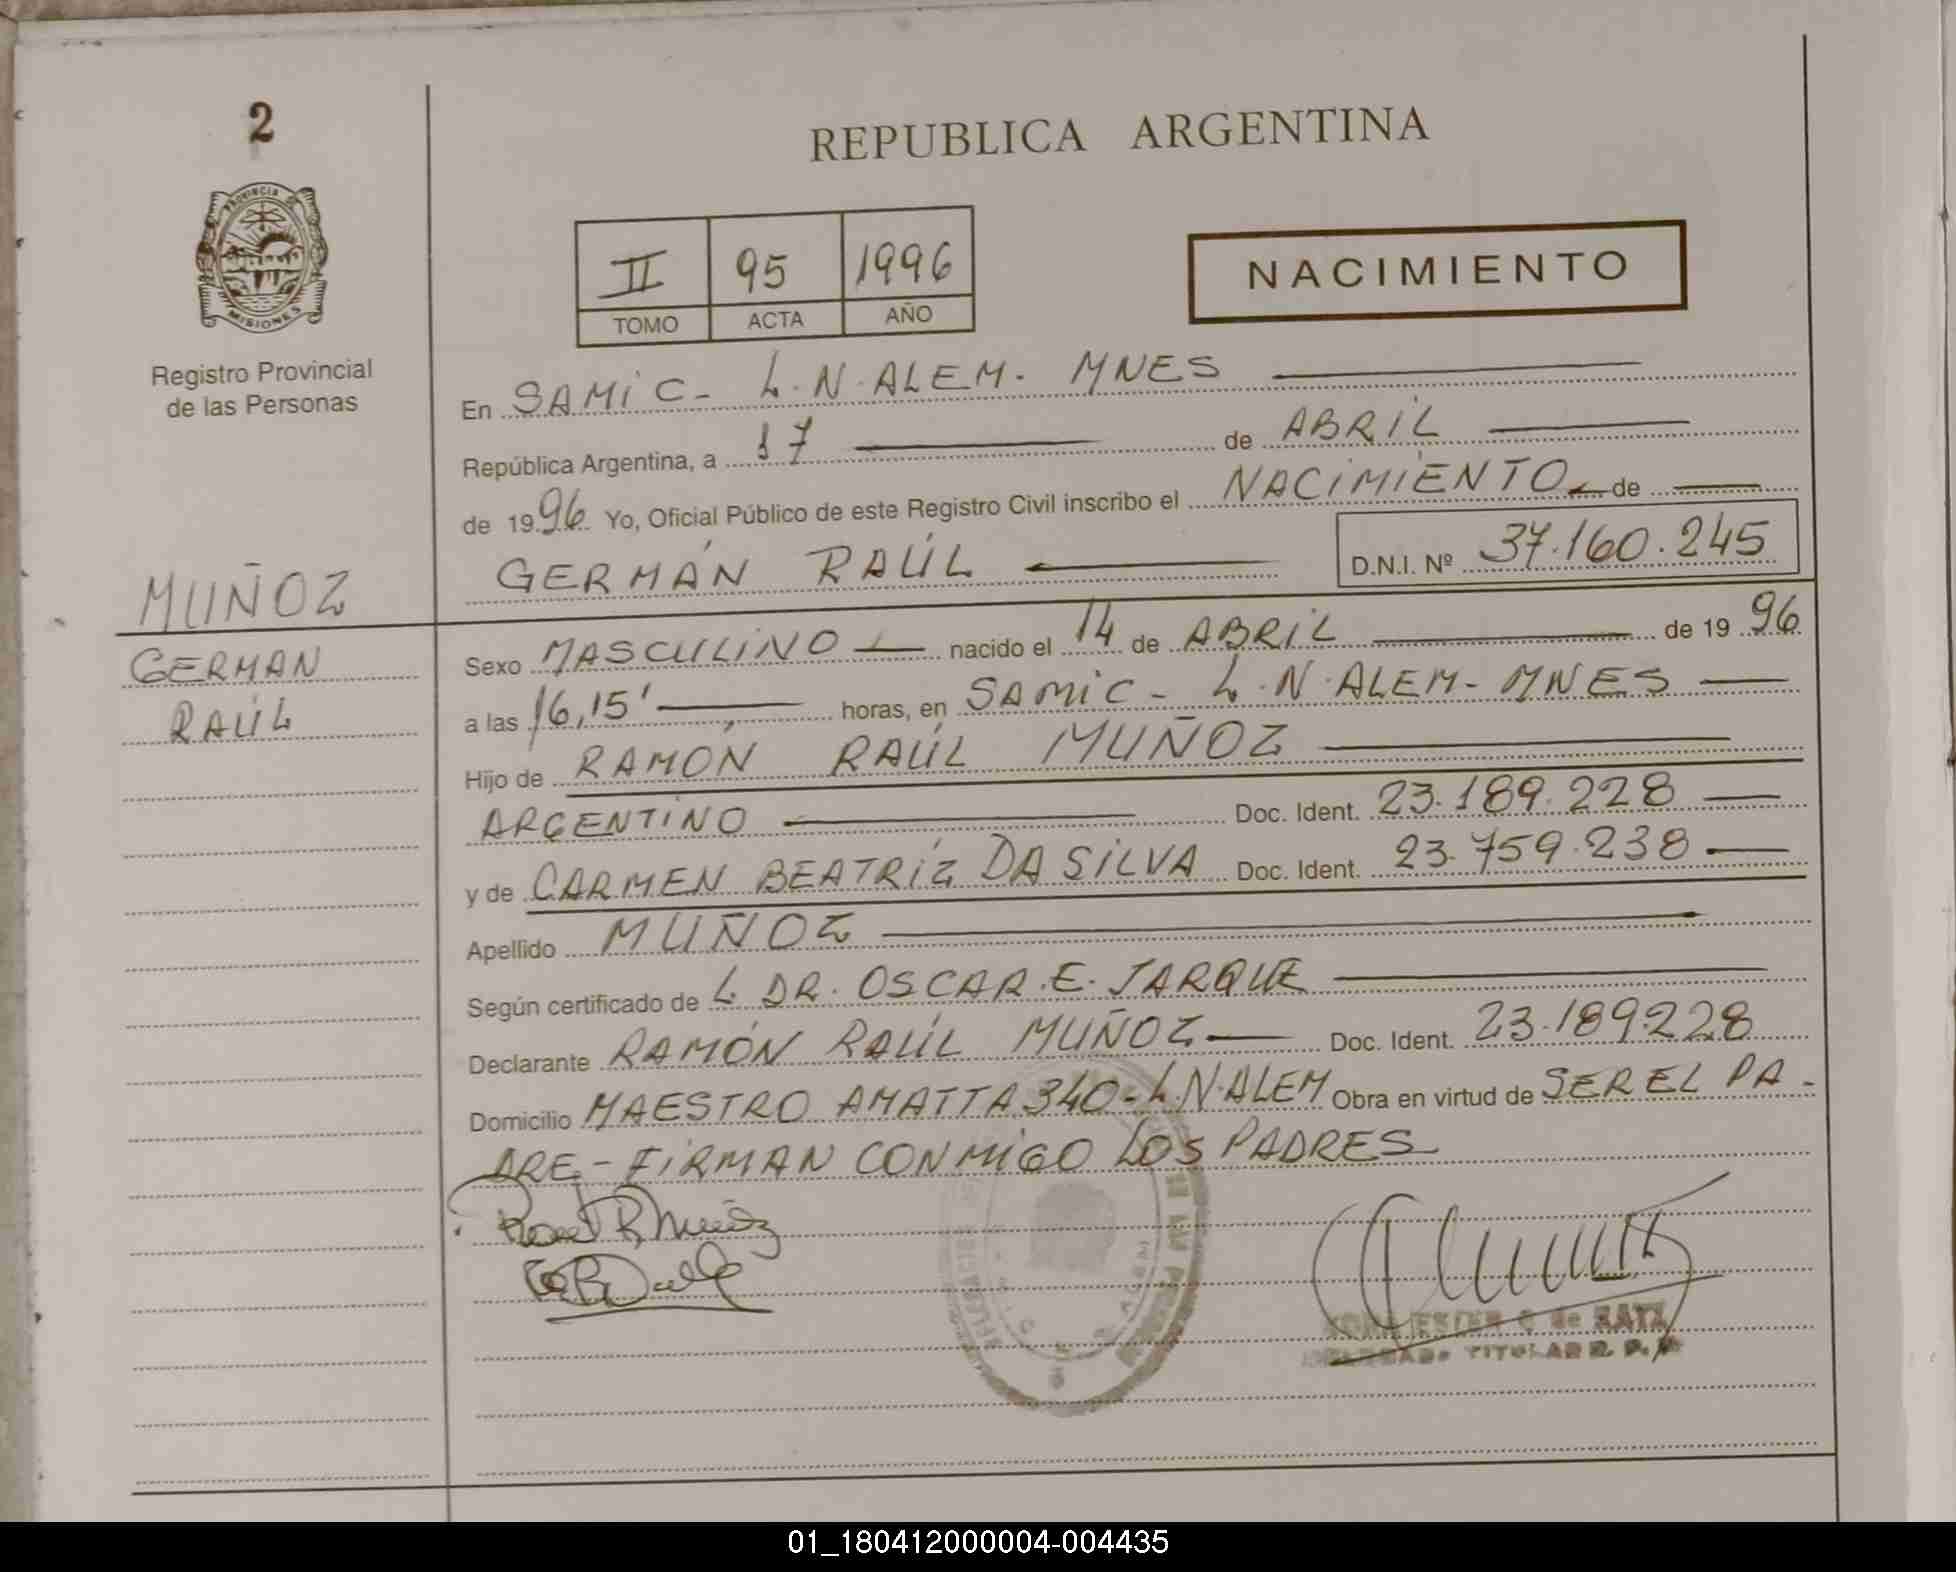 2
REPUBLICA ARGENTINA
PROVINCIA DE
MISIONES
Registro Provincial
de las Personas
II 95 1996
TOMO ACTA AÑO
NACIMIENTO
En SAMIC - L.N.ALEM. MNES
República Argentina, a 17 de ABRIL
de 1996 Yo, Oficial Público de este Registro Civil inscribo el NACIMIENTO de
GERMÁN RAÚL D.N.I. Nº 37.160.245
MUÑOZ
GERMAN
RAÚL
Sexo MASCULINO nacido el 14 de ABRIL de 1996
a las 16,15' horas, en SAMIC - L.N.ALEM - MNES
Hijo de RAMÓN RAÚL MUÑOZ
ARGENTINO Doc. Ident. 23.189.228
y de CARMEN BEATRÍZ DA SILVA Doc. Ident. 23.759.238
Apellido MUÑOZ
Según certificado de L DR. OSCAR.E. JARQUE
Declarante RAMÓN RAÚL MUÑOZ Doc. Ident. 23.189.228
Domicilio MAESTRO AMATTA 340 - L.N.ALEM Obra en virtud de SER EL PA-
DRE - FIRMAN CONMIGO LOS PADRES
TITULAR R. P.
01_180412000004-004435